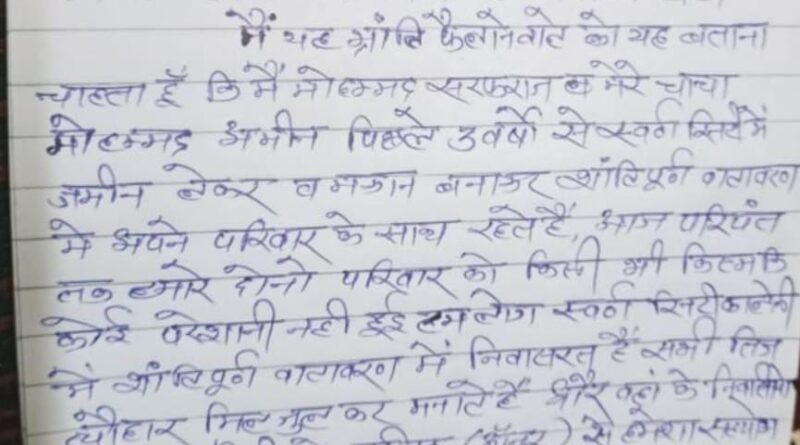 मैं यह भ्रांति फैलानेवाले को यह बताना
चाहता हूँ कि मैं मोहम्मद सरफराज व मेरे चाचा
मोहम्मद अमीन पिछले 3 वर्षो से स्वर्ण सिटी में
जमीन लेकर व मकान बनाकर शांतिपूर्ण वातावरण
में अपने परिवार के साथ रहते हैं, आज परियंत
तक हमारे दोनो परिवार को किसी भी किस्म कि
कोई परेशानी नही हुई हम लोग स्वर्ण सिटी कालोनी
में शांतिपूर्ण वातावरण में निवासरत् हैं सभी तिज
त्यौहार मिल जुल कर मनाते है और वहां के निवासीयो
से हमेशा सहयोग